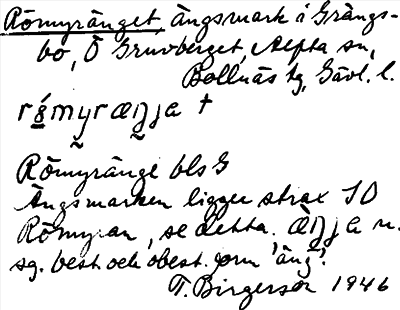 Römyränget, Ängsmark å Grängs-
bo, Ö Gruvberget, Alfta sn,
Bollnäs tg, Gävl. l.
Römyränge bls G
Ängsmarken ligger strax SO
Römyran, se detta. æŋja n.
sg. best. och obest. form 'äng'.
T. Birgerson 1946